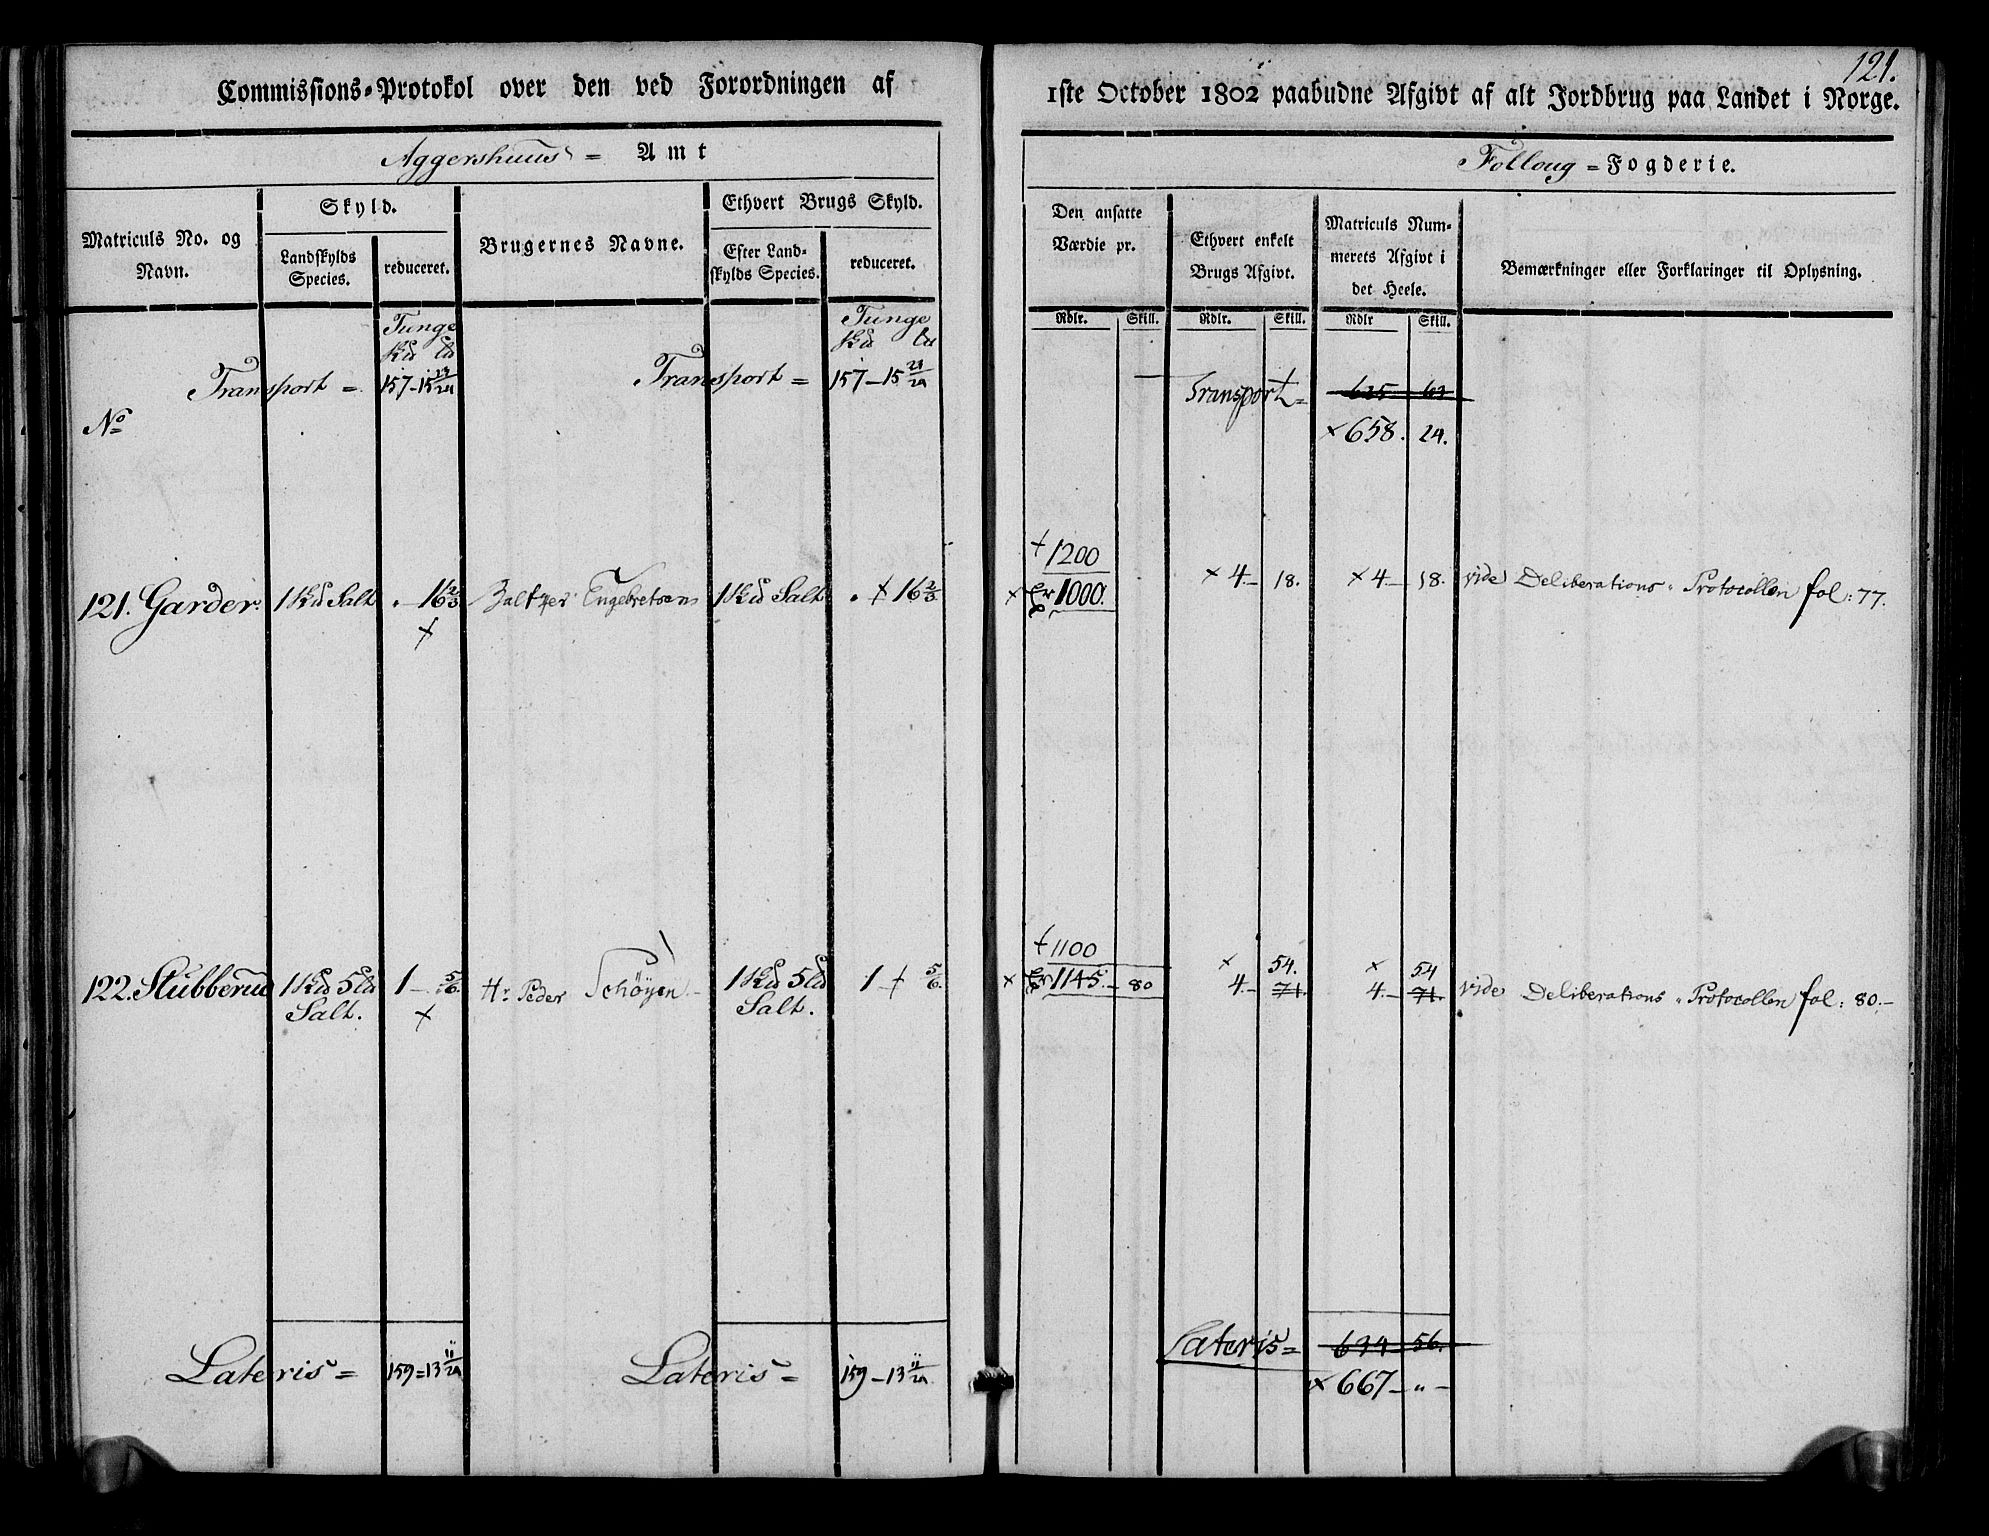 121.
Commissions-Protokol over den ved Forordningen af 1ste October 1802 paabudne Afgivt af alt Jordbrug paa Landet i Norge.
Aggershuus = Amt
Folloug = Fogderie.
Matriculs No. og Navn.
Skyld.
Landskylds Species.
reduceret.
Brugernes Navne.
Ethvert Brugs Skyld.
Efter Landskylds Species.
reduceret.
Den ansatte Værdie pr.
Ethvert enkelt Brugs Afgivt.
Matriculs Nummerets Afgivt i det Heele.
Bemærkninger eller Forklaringer til Oplysning.
Rdlr. Skill. Rdlr. Skill. Rdlr Skill.
Tunge Tunge
Transport = 157-15 Transport = 157-15 Transport = 625
No × 658. 24.
† 1200
121. Garder. 1 Skd Salt . 16 2/3 Engebretsens 1 Skd Salt . † 16 2/3 × 1000. × 4.- 18. × 4.- 18. vide Deliberations-Protocollen fol: 77.
† 1100
× 54. × 54
122. Stubberud 1 Skd 5 Ld Salt. 1 - 5/6. Hr. Peder Schöyen 1 Skd 5 Ld Salt. 1 † 5/6. × 1145.- 80 4.- 71. 4.- 71. vide Deliberations-Protocollen fol: 80.-
Lateris = 159=13 11/24 Lateris = 159-13 11/24 Lateris = 634 56.
× 667 - " -